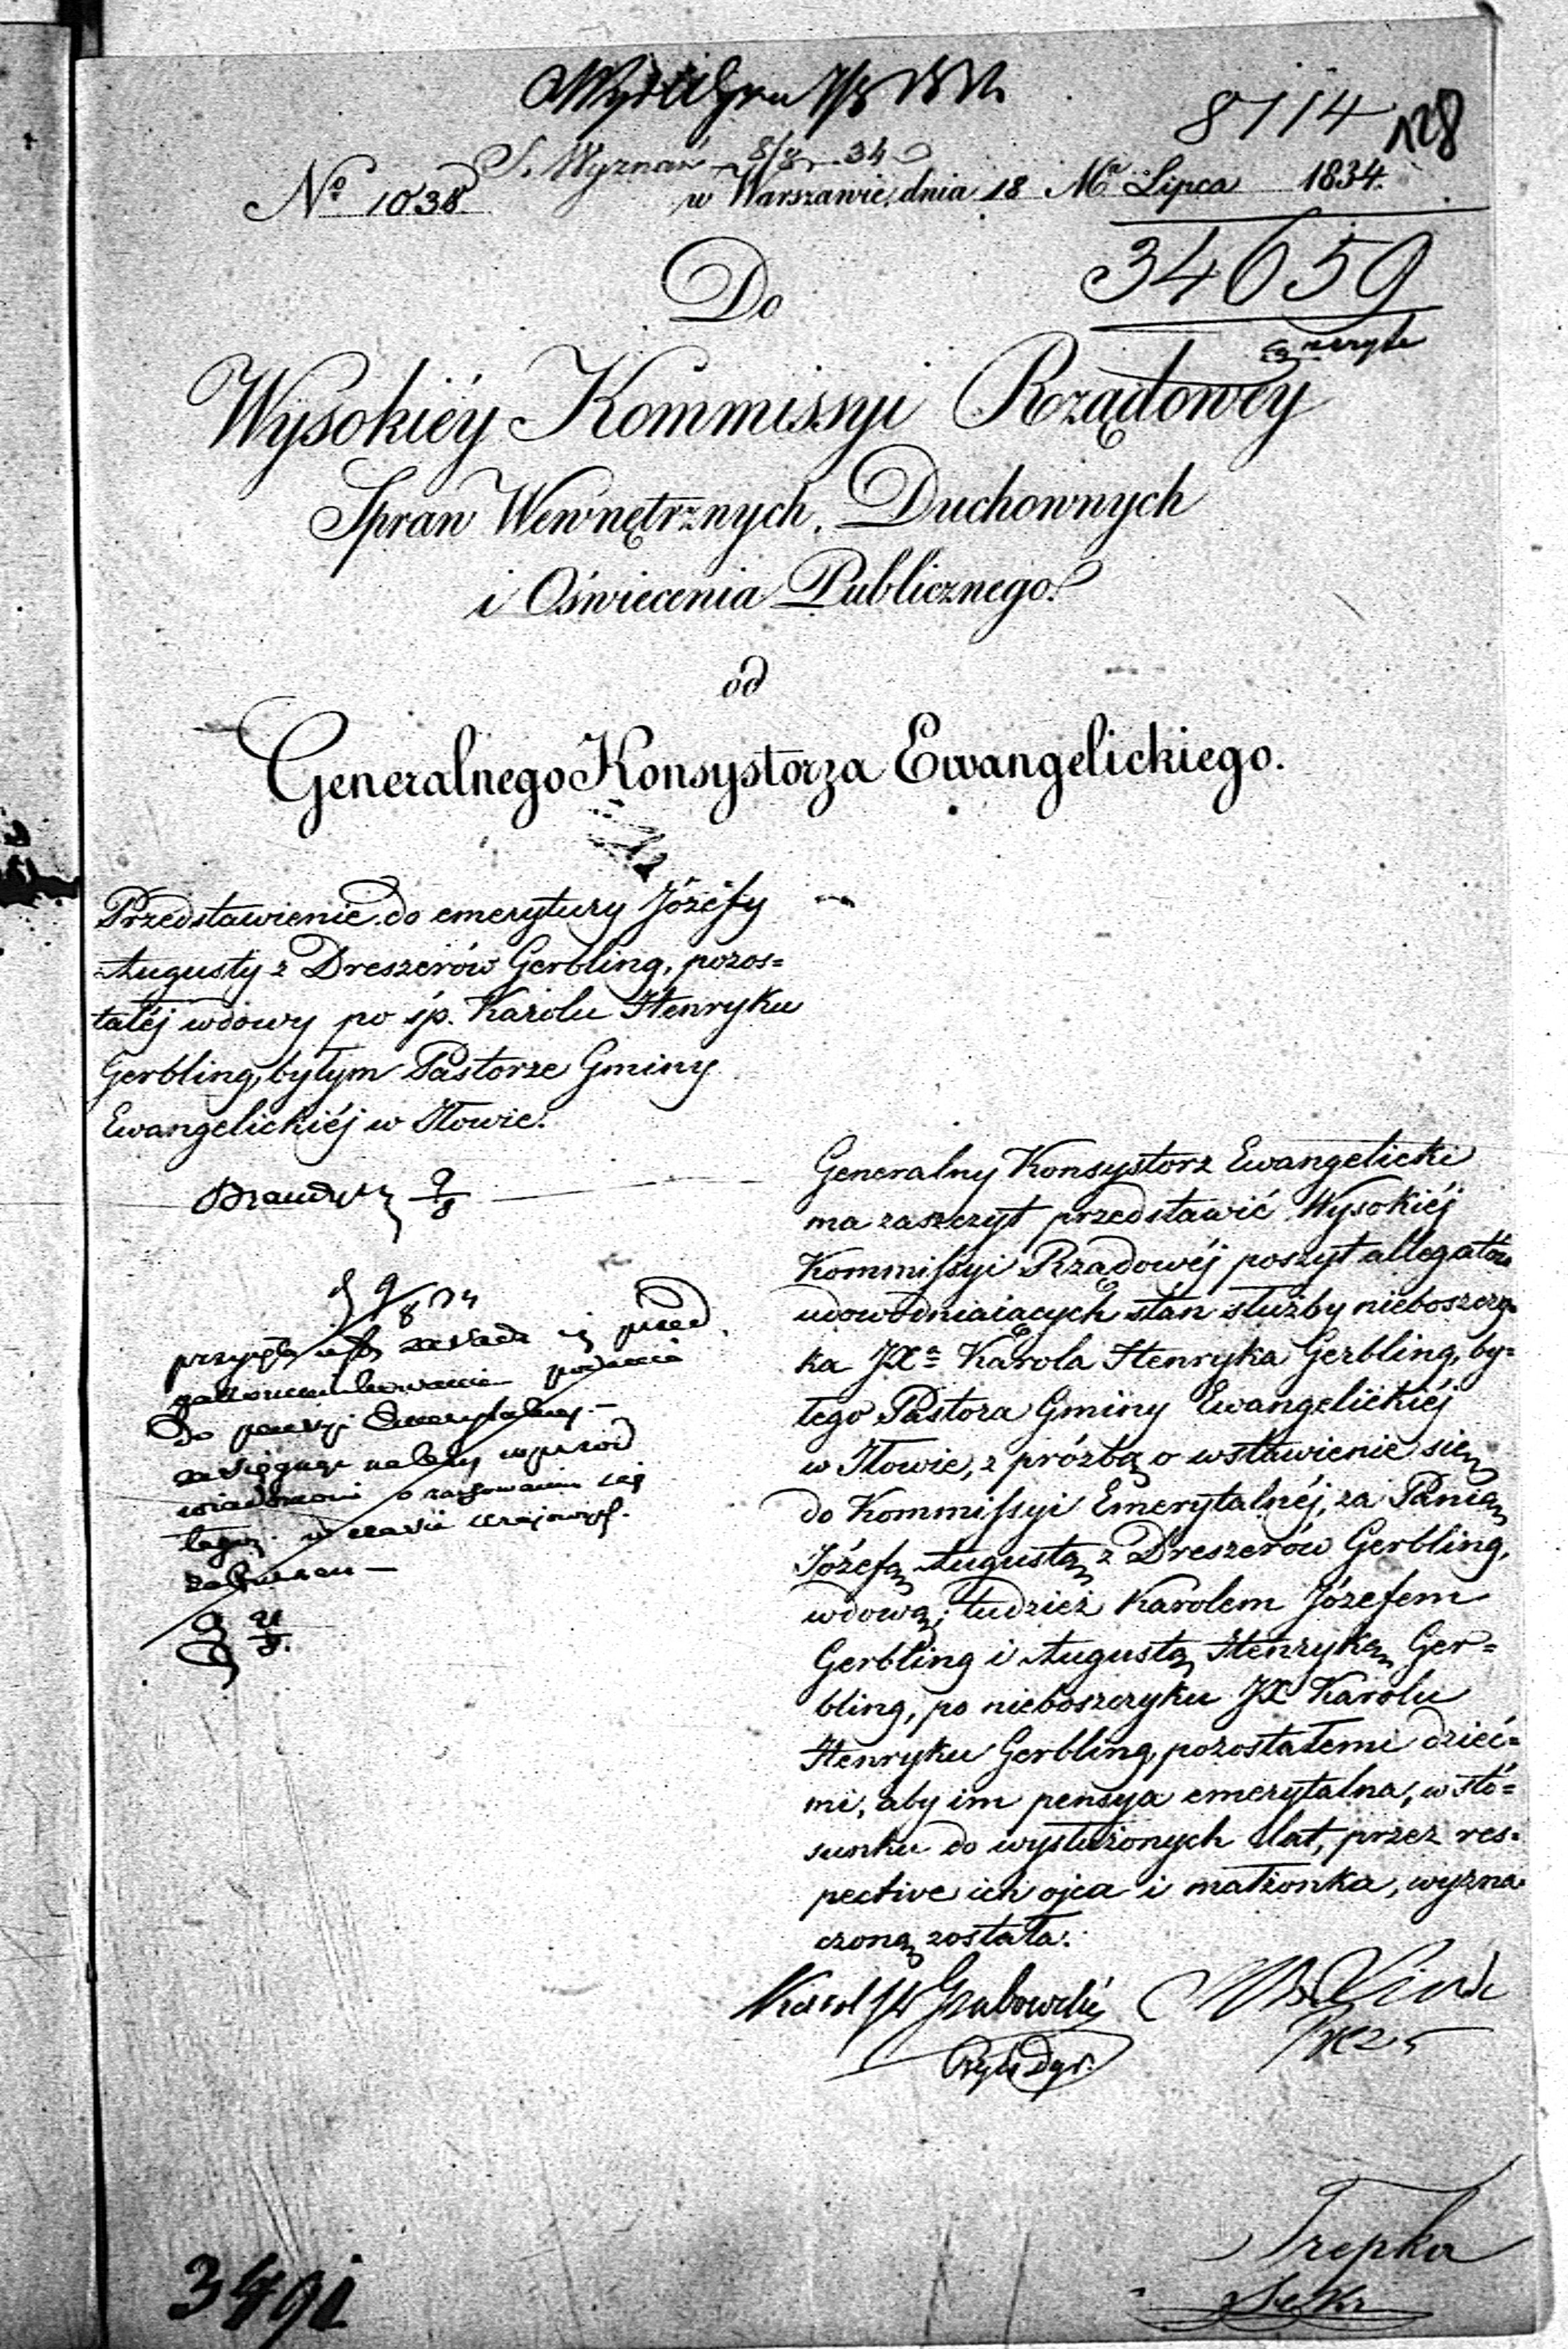 8114 128
S. Wyznań 8/8 34
No 1038 w Warszawie, dnia 18 Ma Lipca 1834.
34659
Do
Wysokiéy Kommissyi Rządowéy
Spraw Wewnętrznych, Duchownych
i Oświecenia Publicznego.
od
Generalnego Konsystorza Ewangelickiego.
Przedstawienie do emerytury Józefy
Augusty z Dreszerów Gerbling, pozos=
tałéj wdowy po śp. Karolu Henryku
Gerbling, byłym Pastorze Gminy
Ewangelickiéj w Iłowie.
9/8
9/8 34
do pensyi Emerytalnej.—
należy wprzód
Generalny Konsystorz Ewangelicki
ma zaszczyt przedstawić Wysokiéj
Kommissyi Rządowéj poszyt allegatów
udowodniaiących stan służby nieboszczy=
ka JXa Karola Henryka Gerbling, by=
łego Pastora Gminy Ewangelickiéj
w Iłowie, z prózbą o wstawienie się
do Kommissyi Emerytalnéj, za Panią
Józefą Augustą z Dreszerów Gerbling,
wdową; tudzież Karolem Józefem
Gerbling i Augustą Henryką Ger=
bling, po nieboszczyku JX Karolu
Henryku Gerbling, pozostałemi dzieć=
mi, aby im pensya emerytalna, w stó=
sunku do wysłużonych lat, przez res=
pective ich ojca i małżonka, wyzna=
czoną została.
Karol Grabowski
Prezes
Trepka
Sekr
3491